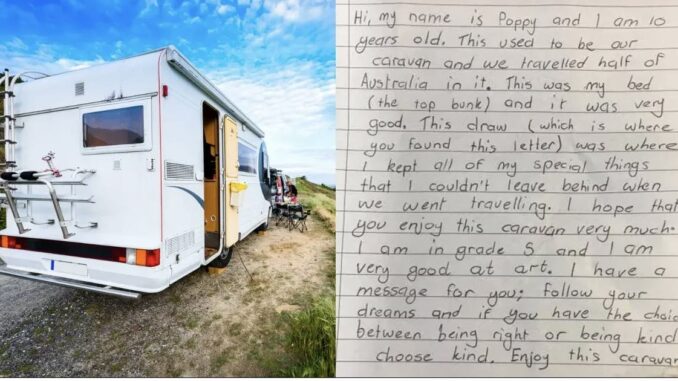 Hi, my name is Poppy and I am 10
years old. This used to be our
caravan and we travelled half of
Australia in it. This was my bed
(the top bunk) and it was very
good. This draw (which is where
you found this letter) was where
I kept all of my special things
that I couldn't leave behind when
we went travelling. I hope that
you enjoy this caravan very much.
I am in grade 5 and I am
very good at art. I have a
message for you; follow your
dreams and if you have the choic
between being right or being kind
choose kind. Enjoy this caravan